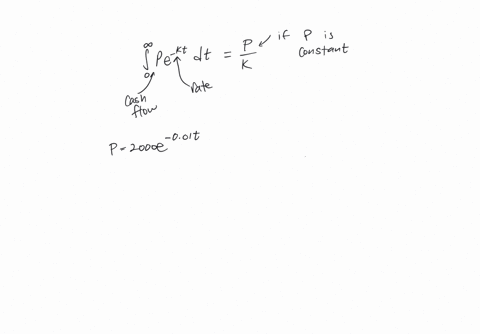 ∫₀^∞ Pe^{-kt} dt = P/K ← if P is constant
Cash flow
rate
P = 2000e^{-0.01t}